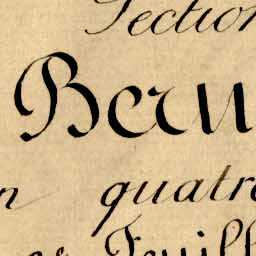 Section
Beru
n quatre
es Feuill